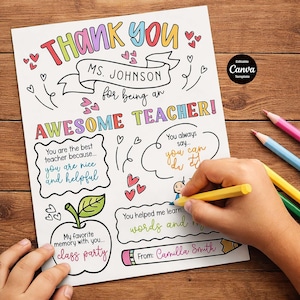 THANK YOU
MS. JOHNSON
for being an
AWESOME TEACHER!
Editable
Canva
Template
You are the best
teacher because...
you are nice
and helpful
You always
say...
you can
do it!
My favorite
memory with you...
class party
You helped me learn
words and
From: Camilla Smith